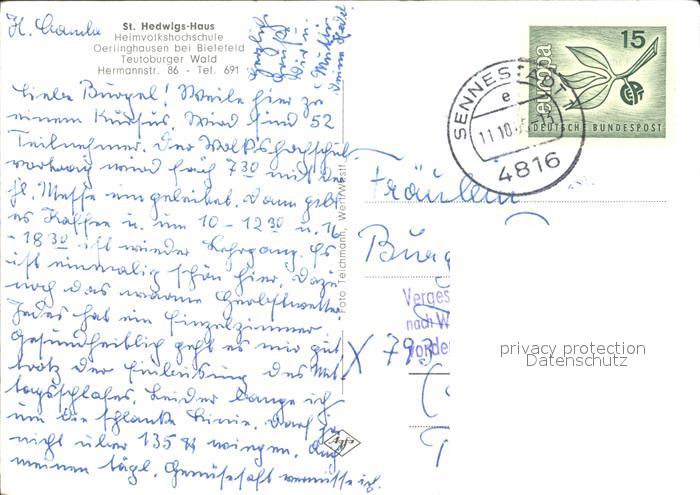 St. Hedwigs-Haus
Heimvolkshochschule
Oerlinghausen bei Bielefeld
Teutoburger Wald
Hermannstr. 86 - Tel. 691
Liebe Burgel! Weile hier zu
einem Kursus. Wird sind 52
Teilnehmer. Der Volkshochschul-
vortrag wird früh 7 30 mit der
hl. Messe eingeleitet. Dann gibt
es Kaffee u. um 10 - 12 30 u. 16
- 18 30 ist wieder Lehrgang. Es
ist einmalig schön hier. Dazu
noch das warme Herbstwetter.
Jedes hat ein Einzelzimmer.
Gesundheitlich geht es mir gut
trotz der Einbüßung des Mit-
tagsschlafes. Leider bange ich
um die schlanke Linie. Darf ja
nicht über 135 wiegen. Auch
meinen tägl. vermisse ich.
Herzlich
grüßt
Foto Teichmann, Werl/Westf.
Agfa
SENNESTADT 1
e
11.10.
4816
europa
15
DEUTSCHE BUNDESPOST
Fräulein
Burg
Verges
nach W
vorder
X 793
privacy protection
Datenschutz